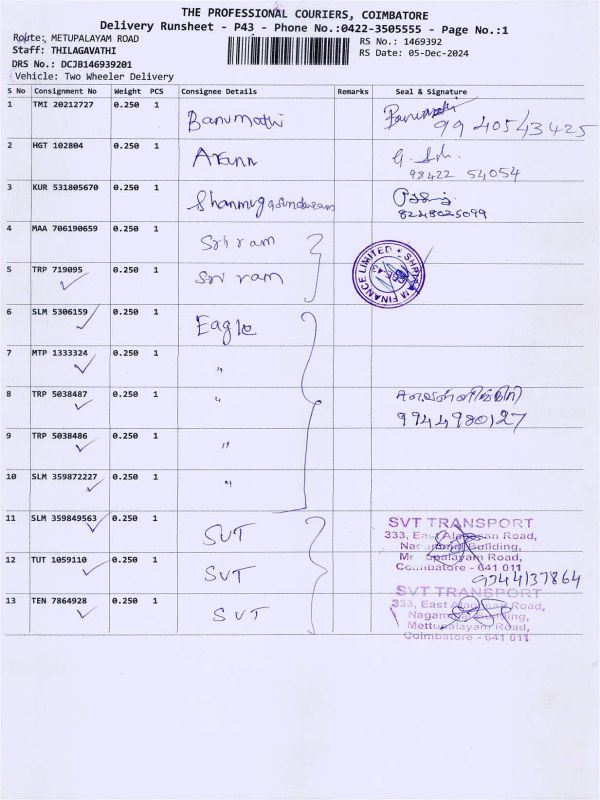 THE PROFESSIONAL COURIERS, COIMBATORE
Delivery Runsheet - P43 - Phone No.:0422-3505555 - Page No.:1
Route: METUPALAYAM ROAD
RS No.: 1469392
Staff: THILAGAVATHI
RS Date: 05-Dec-2024
DRS No.: DCJB146939201
Vehicle: Two Wheeler Delivery
S No Consignment No Weight PCS Consignee Details Remarks Seal & Signature
1 TMI 20212727 0.250 1 Banumathi
99 40543425
2 HGT 102804 0.250 1
98422 54054
3 KUR 531805670 0.250 1 Shanmugasundaram
8248025099
4 MAA 706190659 0.250 1 Sri ram
5 TRP 719095 0.250 1 Sri ram
SHRIRAM FINANCE LIMITED
6 SLM 5306159 0.250 1 Eagle
7 MTP 1333324 0.250 1 "
8 TRP 5038487 0.250 1 "
9944980127
9 TRP 5038486 0.250 1 "
10 SLM 359872227 0.250 1 "
11 SLM 359849563 0.250 1 SVT
SVT TRANSPORT
333, East Road,
Building,
Road,
Coimbatore - 641 011
12 TUT 1059110 0.250 1 SVT
9344137864
13 TEN 7864928 0.250 1 SVT
SVT TRANSPORT
333, East Road,
Road,
Coimbatore - 641 011